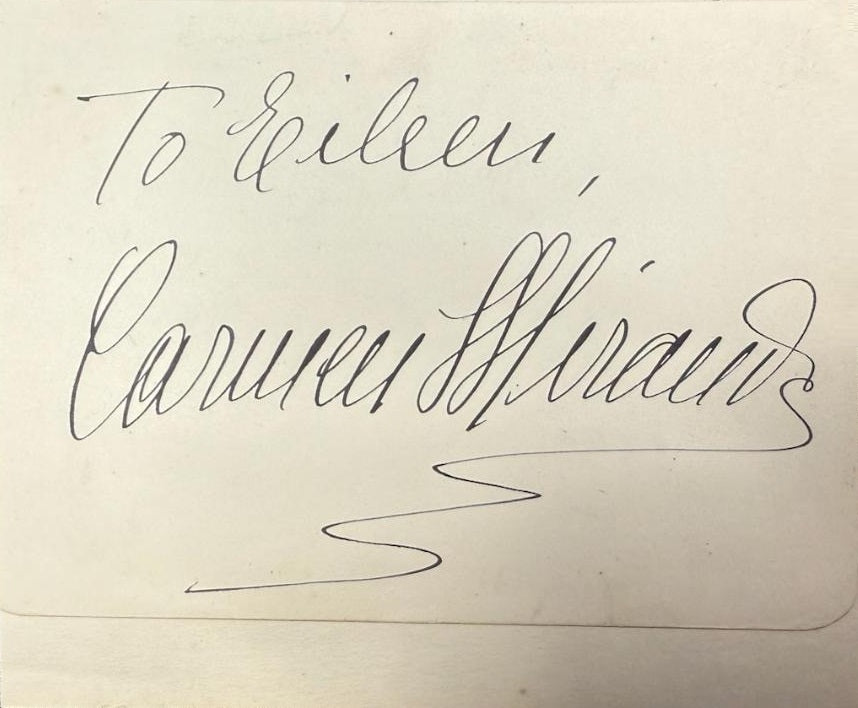 To Eileen,
Carmen Miranda